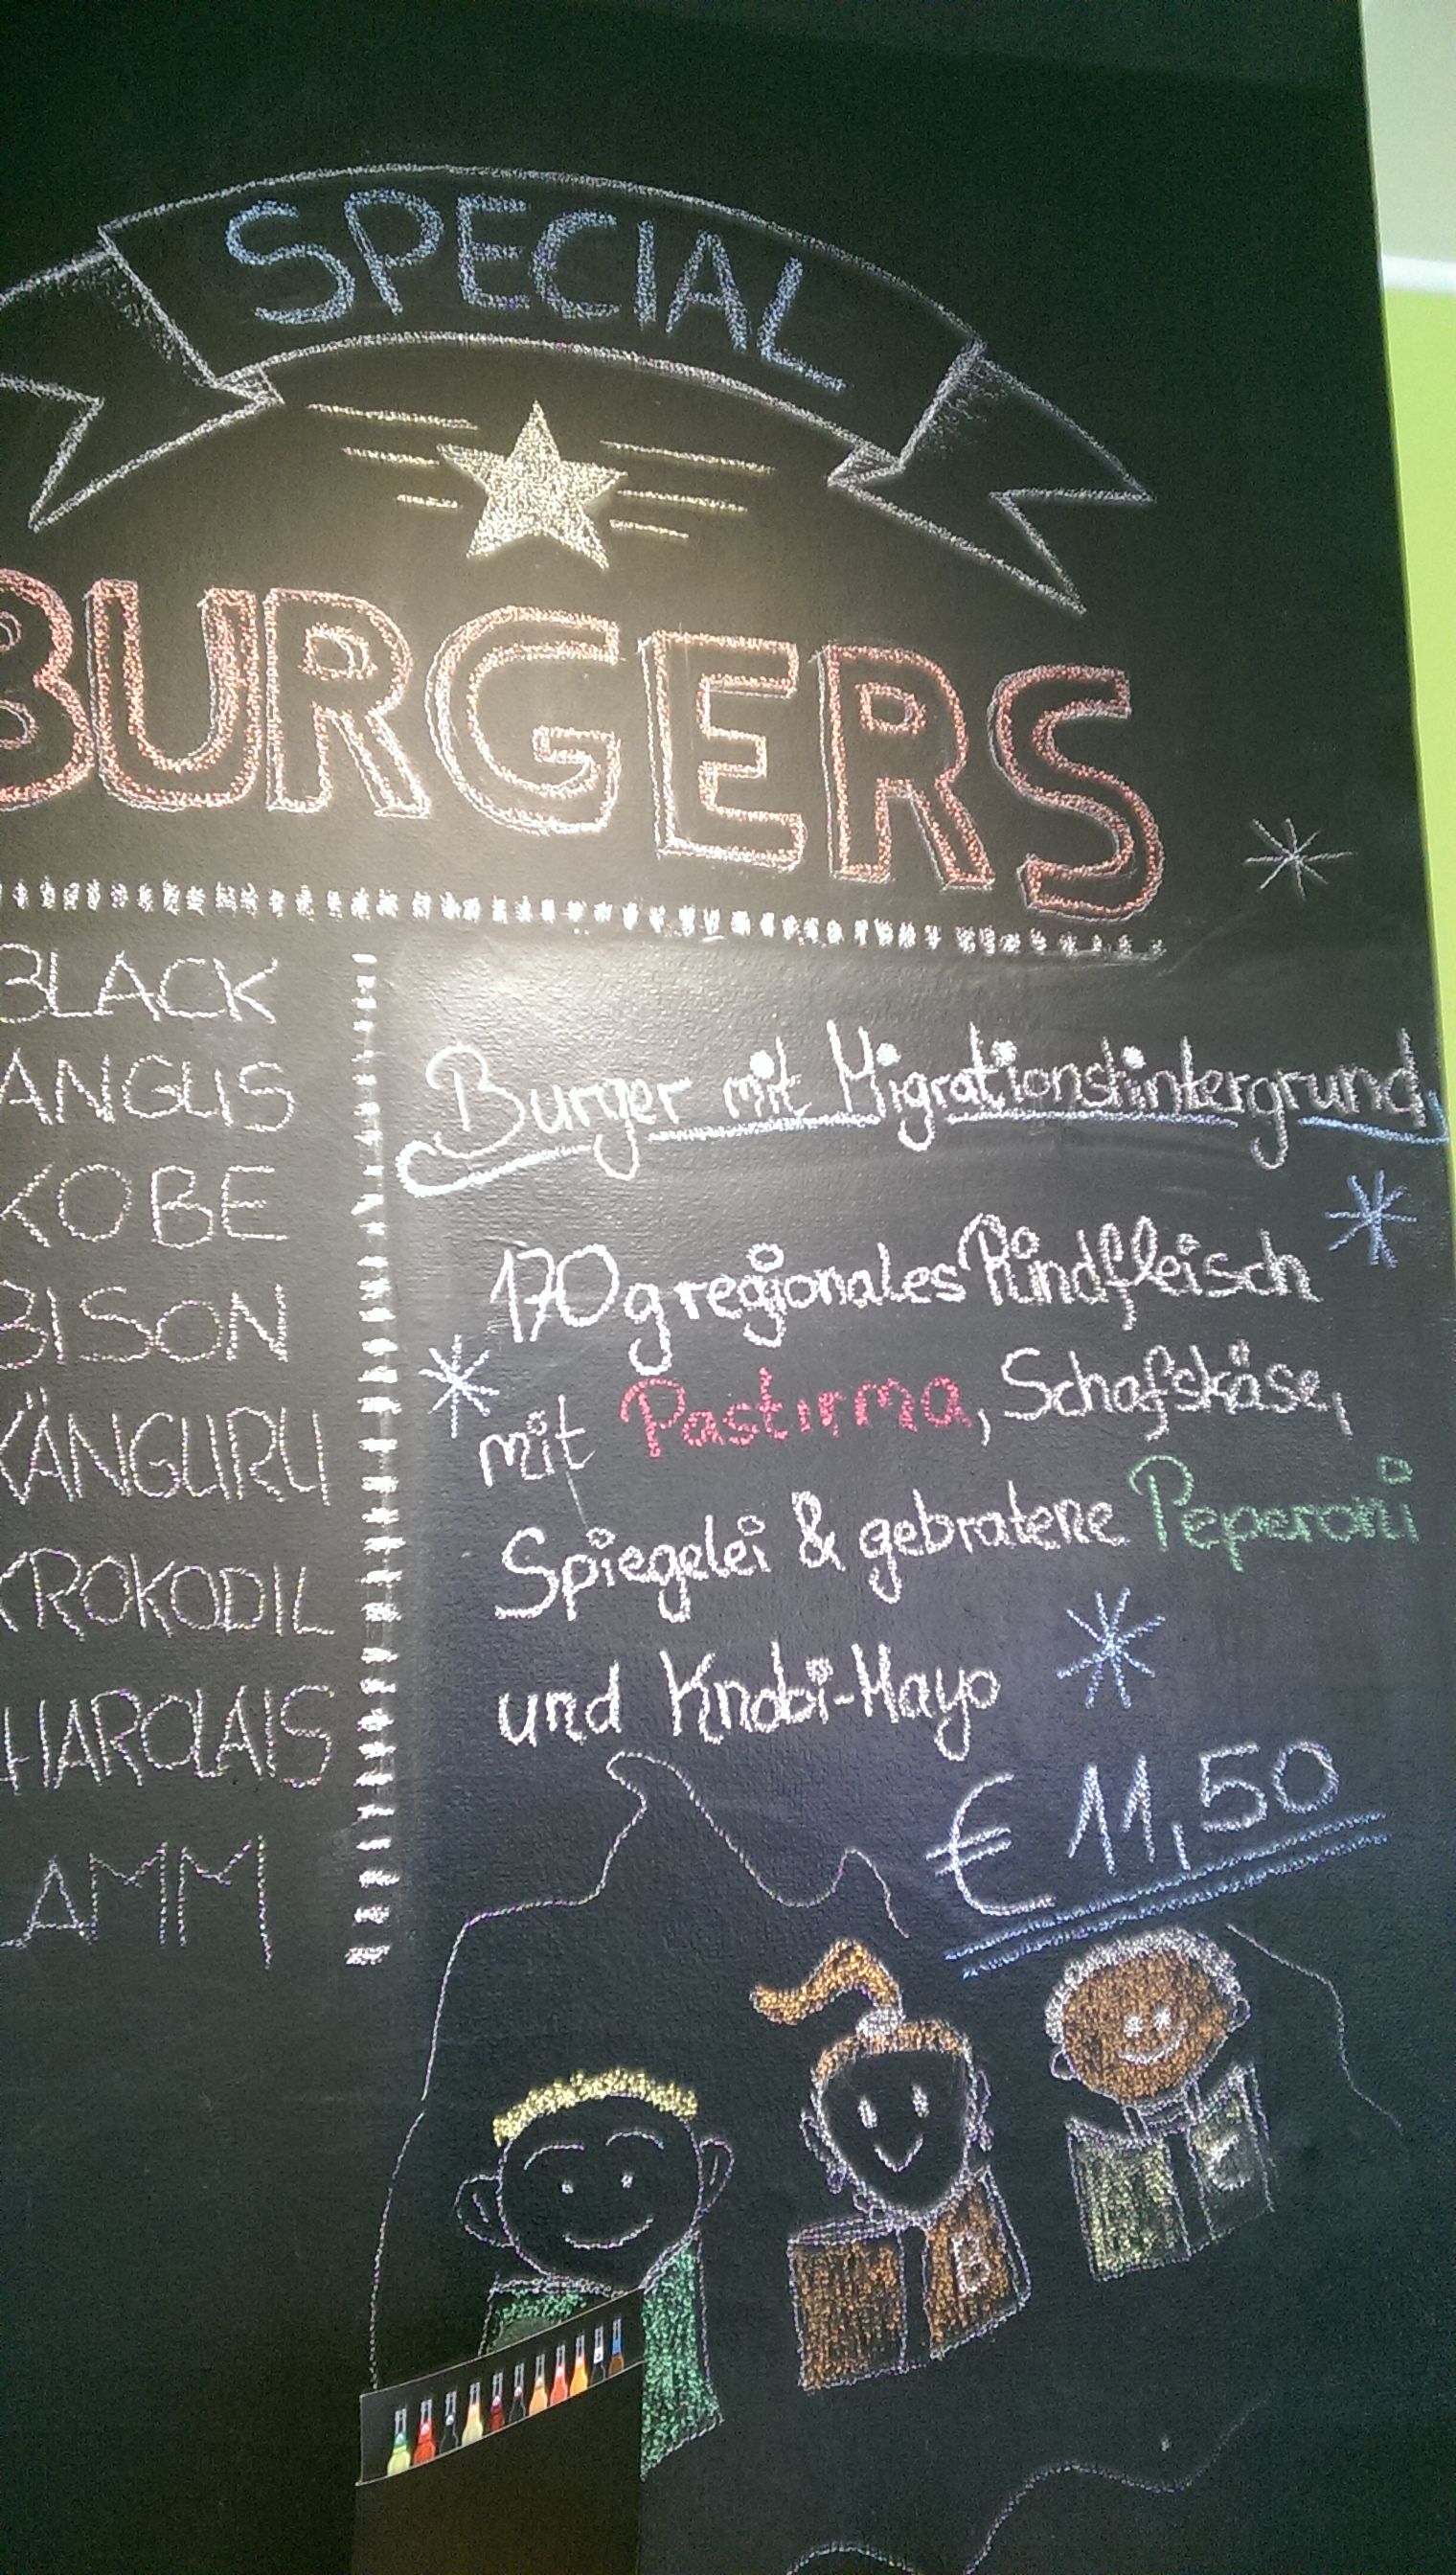 SPECIAL
BURGERS
BLACK
ANGUS
KOBE
BISON
KÄNGURU
KROKODIL
HAROLAIS
AMM
Burger mit Migrationshintergrund
170g regionales Rindfleisch
mit Pastırma, Schafskäse,
Spiegelei & gebratene Peperoni
und Knobi-Mayo
€ 11,50
B
C